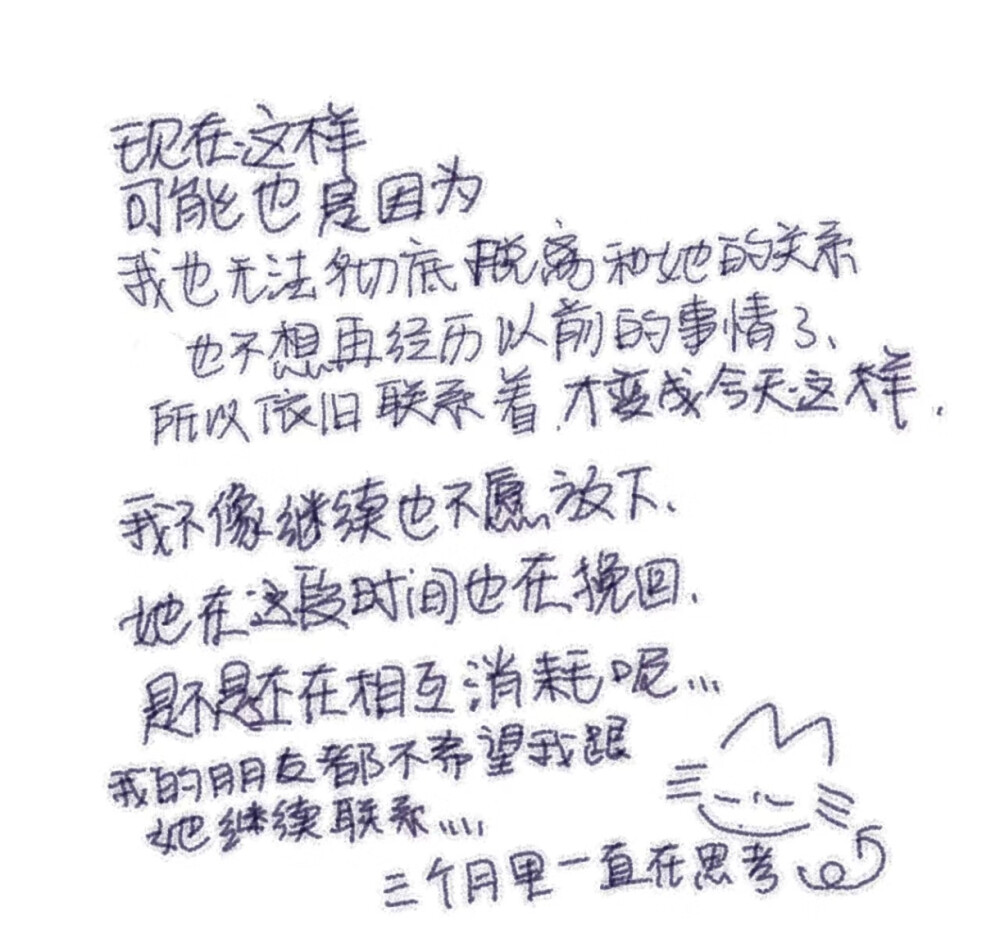 现在这样
可能也是因为
我也无法彻底脱离和她的关系
也不想再经历以前的事情了、
所以依旧联系着.才变成今天这样.
我不像继续也不愿放下、
她在这段时间也在挽回.
是不是还在相互消耗呢...
我的朋友都不希望我跟
她继续联系....
三个月里一直在思考